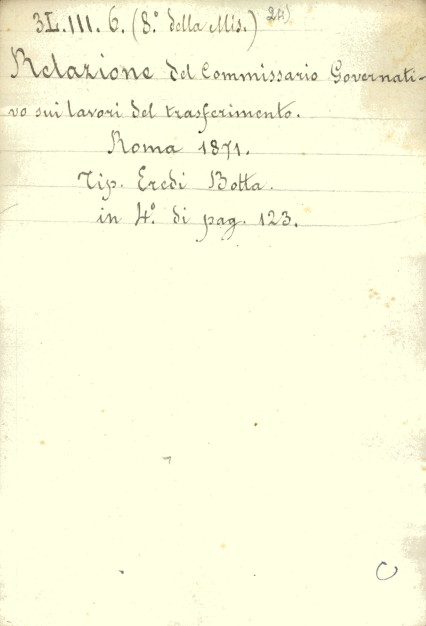 3L.III. 6. (8.° della Mis.) 24)
Relazione del Commissario Governati-
vo sui lavori del trasferimento.
Roma 1871.
Tip. Eredi Botta.
in 4.° di pag. 123.
C